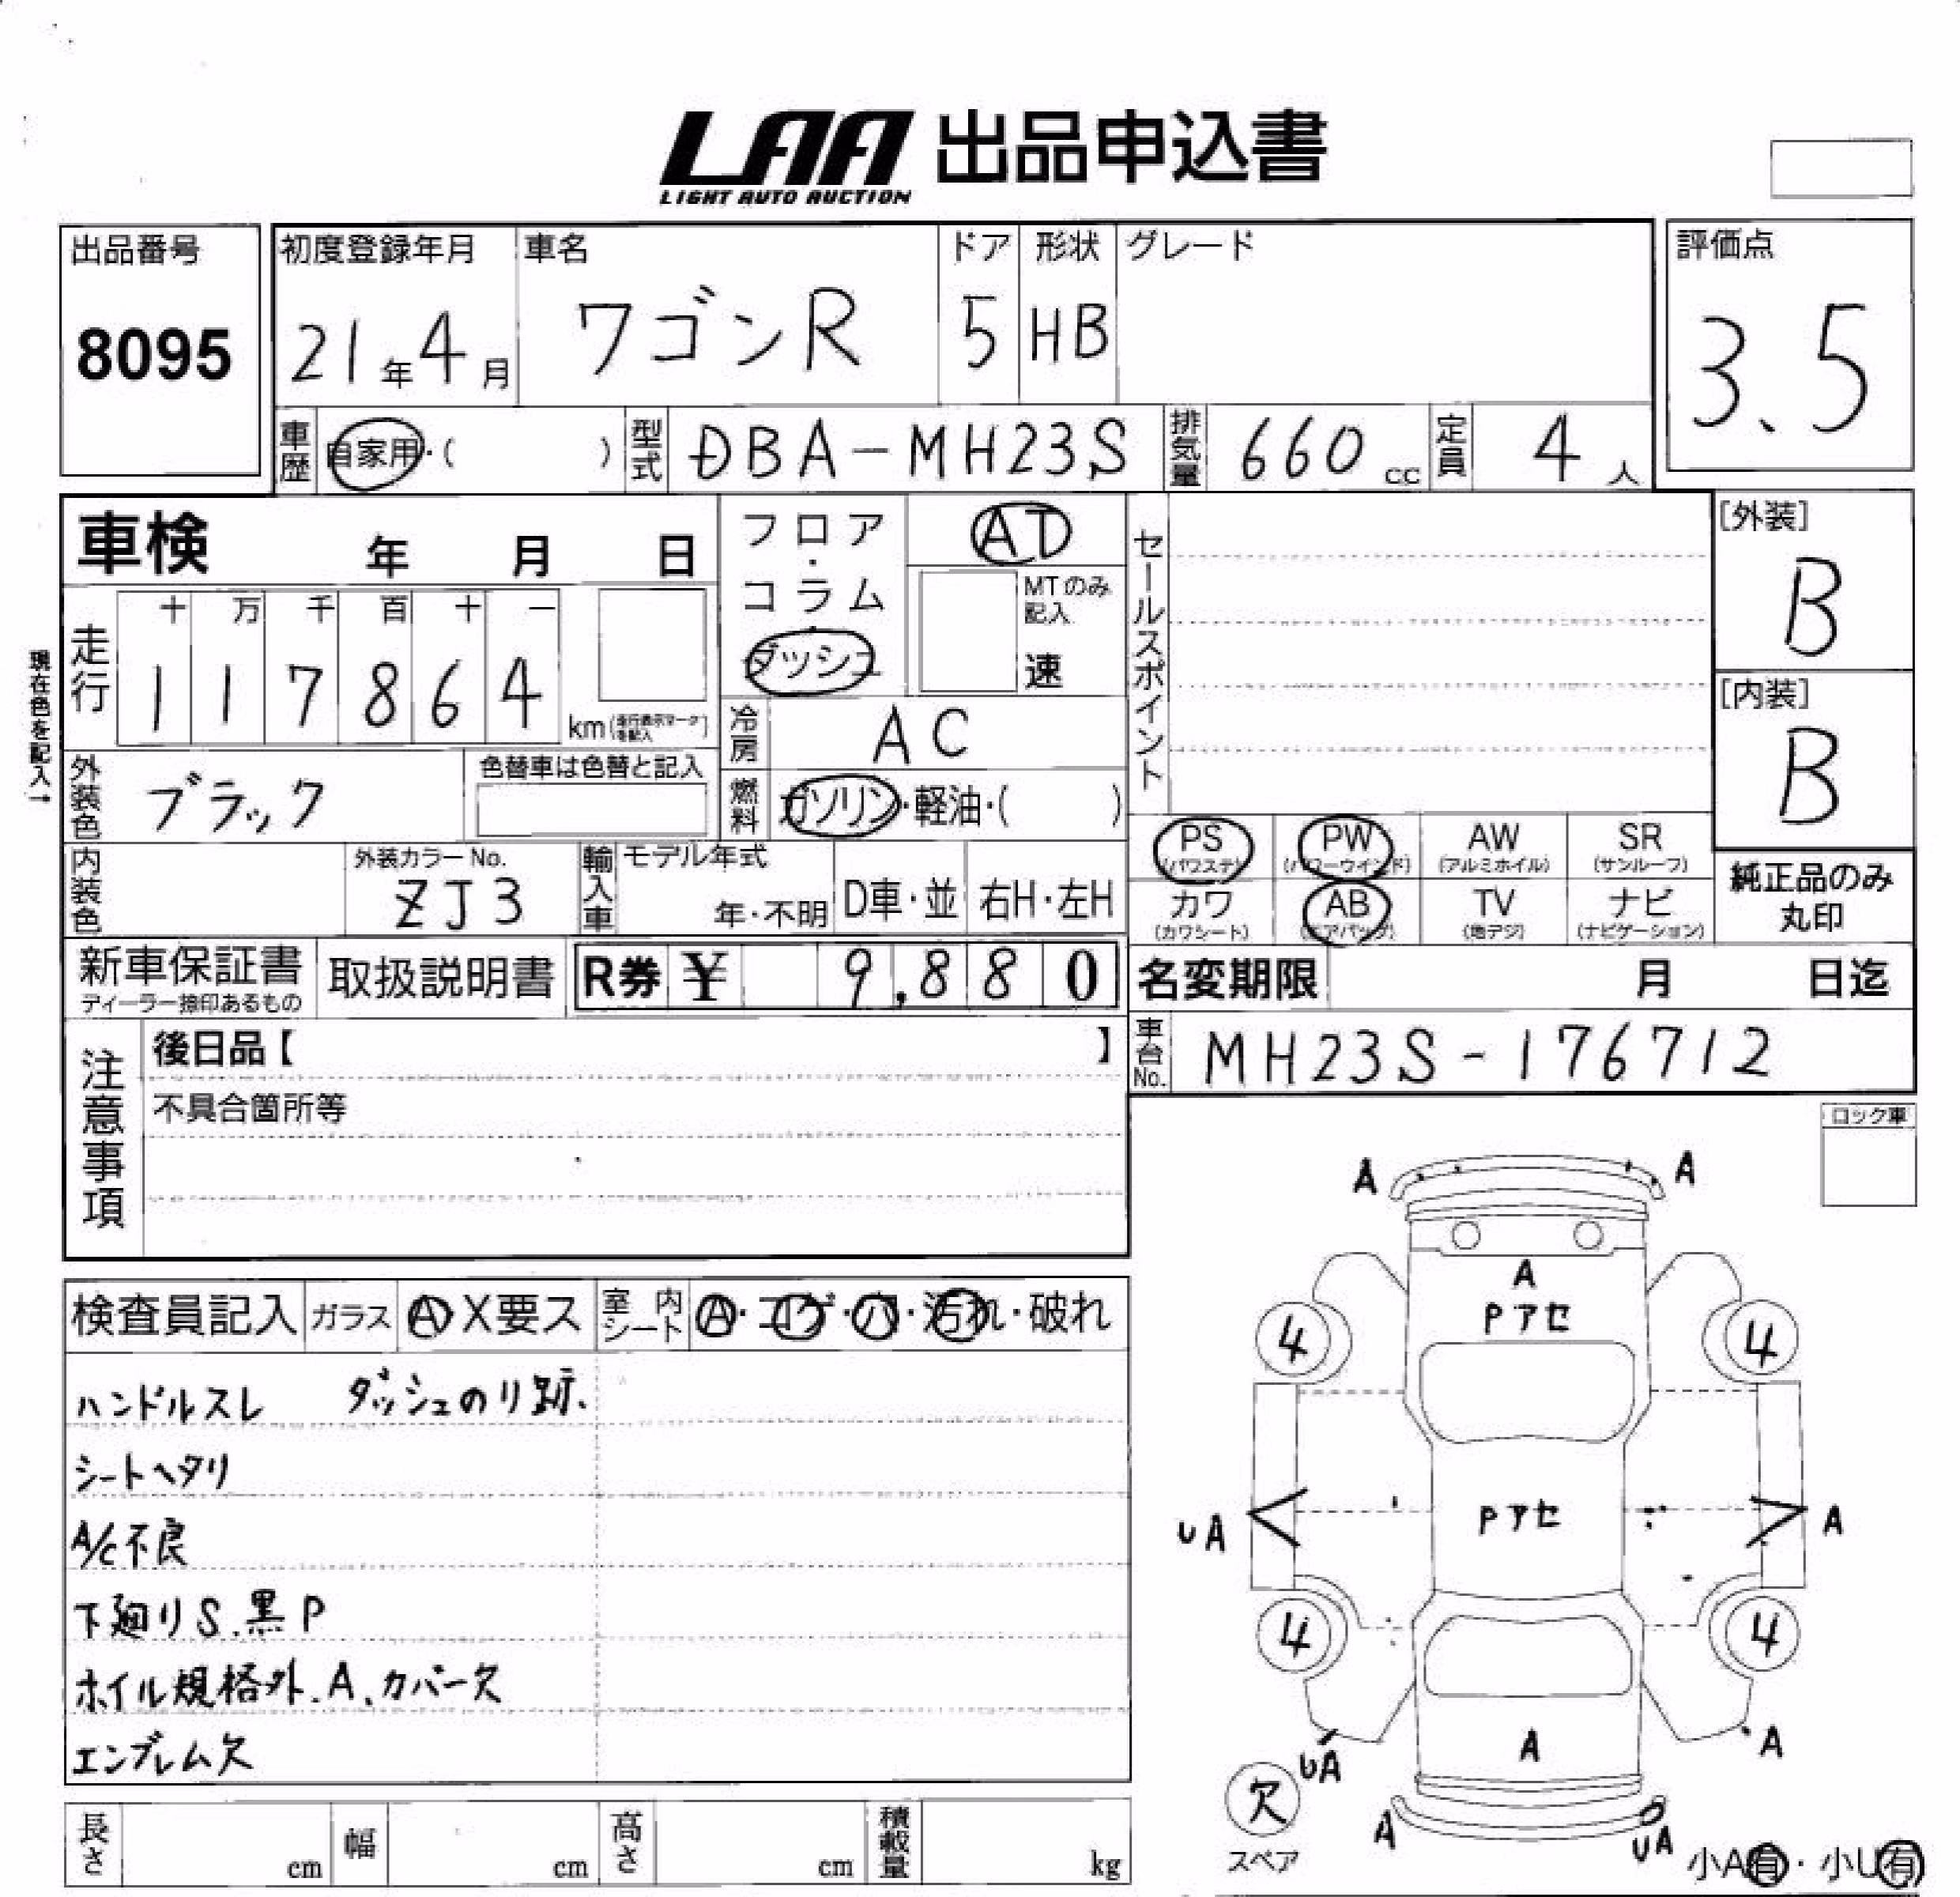 LAA 出品申込書
LIGHT AUTO AUCTION
出品番号
8095
初度登録年月
21年4月
車名
ワゴンR
ドア
5
形状
HB
グレード
評価点
3.5
車歴 自家用・( )
型式 DBA-MH23S
排気量 660cc
定員 4人
車検 年 月 日
フロア・コラム・ダッシュ
AT
MTのみ記入
速
セールスポイント
[外装]
B
[内装]
B
現在色を記入→
走行
十 万 千 百 十 一
1 1 7 8 6 4
km(走行表示マークを記入)
冷房 AC
外装色 ブラック
色替車は色替と記入
燃料 ガソリン・軽油・( )
内装色
外装カラーNo.
ZJ3
輸入車
モデル年式
年・不明
D車・並
右H・左H
PS (パワステ)
PW (パワーウインド)
AW (アルミホイル)
SR (サンルーフ)
カワ (カワシート)
AB (エアバッグ)
TV (地デジ)
ナビ (ナビゲーション)
純正品のみ
丸印
新車保証書
ディーラー捺印あるもの
取扱説明書
R券 ¥ 9,880
名変期限 月 日迄
車台No. MH23S-176712
注意事項
後日品【 】
不具合箇所等
ロック車
検査員記入 ガラス A X要ス 室内シート A・コゲ・穴・汚れ・破れ
ハンドルスレ ダッシュのり跡.
シートヘタリ
A/C不良
下廻りS.黒P
ホイル規格外.A、カバー欠
エンブレム欠
長さ cm 幅 cm 高さ cm 積載量 kg
A A
A
Pアセ
4 4
UA Pアセ A
4 4
UA A A
欠
スペア
A UA
小A有・小U有